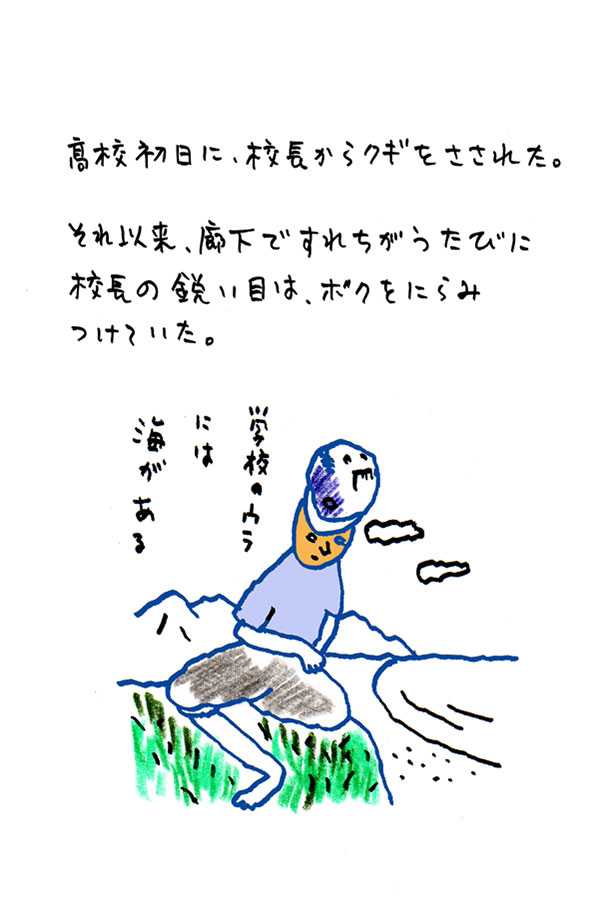 高校初日に、校長からクギをさされた。
それ以来、廊下ですれちがうたびに
校長の鋭い目は、ボクをにらみ
つけていた。
学校のウラ
には
海がある